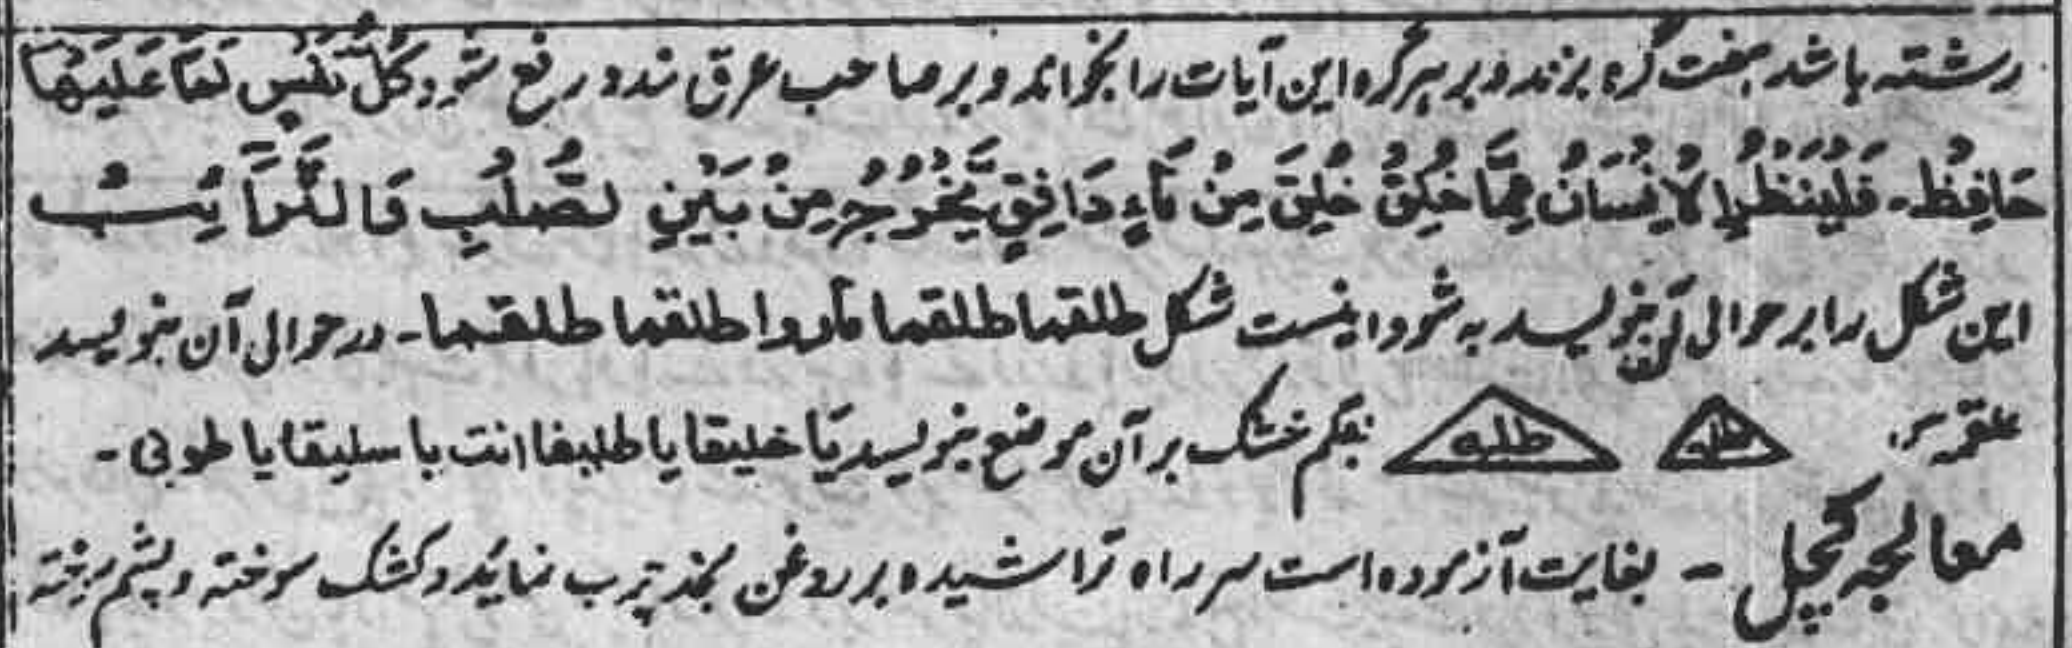 رشته باشد هفت گره بزند و بر هر گره این آیات را بخواند و بر صاحب عرق بندد رفع شود کُلُّ نَفْسٍ لَمَّا عَلَیْهَا
حَافِظٌ - فَلْیَنْظُرِ الْاِنْسَانُ مِمَّا خُلِقَ خُلِقَ مِنْ مَآءٍ دَافِقٍ یَّخْرُجُ مِنْ بَیْنِ لصُّلْبِ وَالتَّرَآئِبُ
این شکل را بر حوالی آن بنویسد به شود اینست شکل طلقما طلقما طلقما ماروا طلقما طلقما - در حوالی آن بنویسد
علقمه طله طله بقلم خشک بر آن موضع بنویسد یا خلیقا یا طلیفا انت یا سلیقا یا طوبی -
معالجه کچل - بغایت آزموده است سر راه تراشیده بر روغن کنجد چرب نماید و کشک سوخته و پشم سوخته